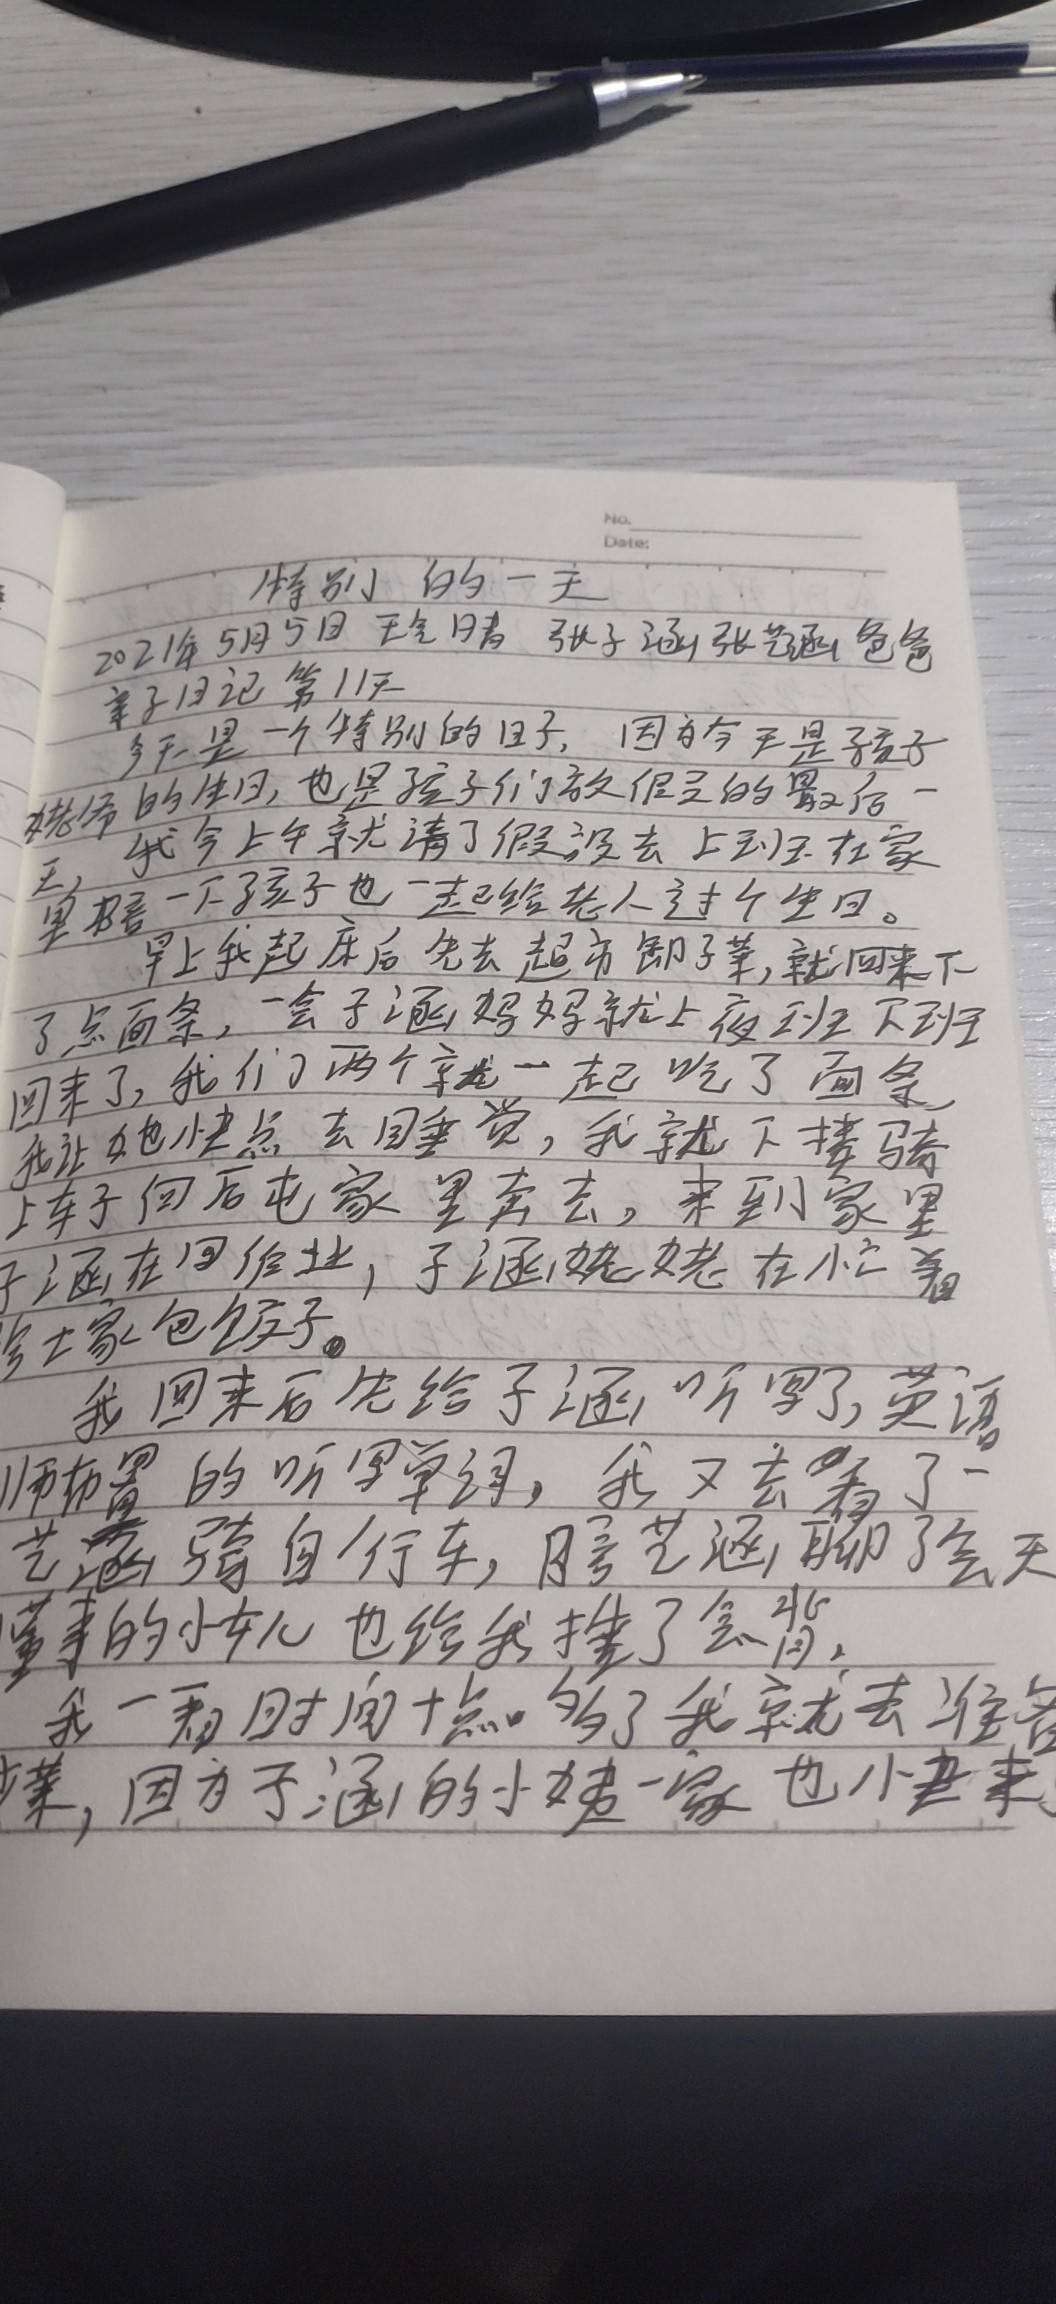 No.
Date:
特别的一天
2021年5月5日 天气晴 张子涵张艺涵爸爸
亲子日记 第11天
今天是一个特别的日子，因为今天是孩子
姥爷的生日，也是孩子们放假的最后一
天，我今上午就请了假没去上班在家
里陪一下孩子也一起给老人过个生日。
早上我起床后先去超市 菜，就回来下
了点面条，一会子涵妈妈就上夜班下班
回来了，我们两个就一起吃了面条，
我让她快点去睡觉，我就下楼骑
上车子向后屯家里奔去，来到家里
子涵在写作业，子涵姥姥在忙着
给大家包饺子。
我回来后先给子涵听写了，英语
师布置的听写单词，我又去看了一
艺涵骑自行车，陪艺涵聊了会天
懂事的小女儿也给我捶了会背，
我一看时间十点多了我就去准备
菜，因为子涵的小姨一家也 来